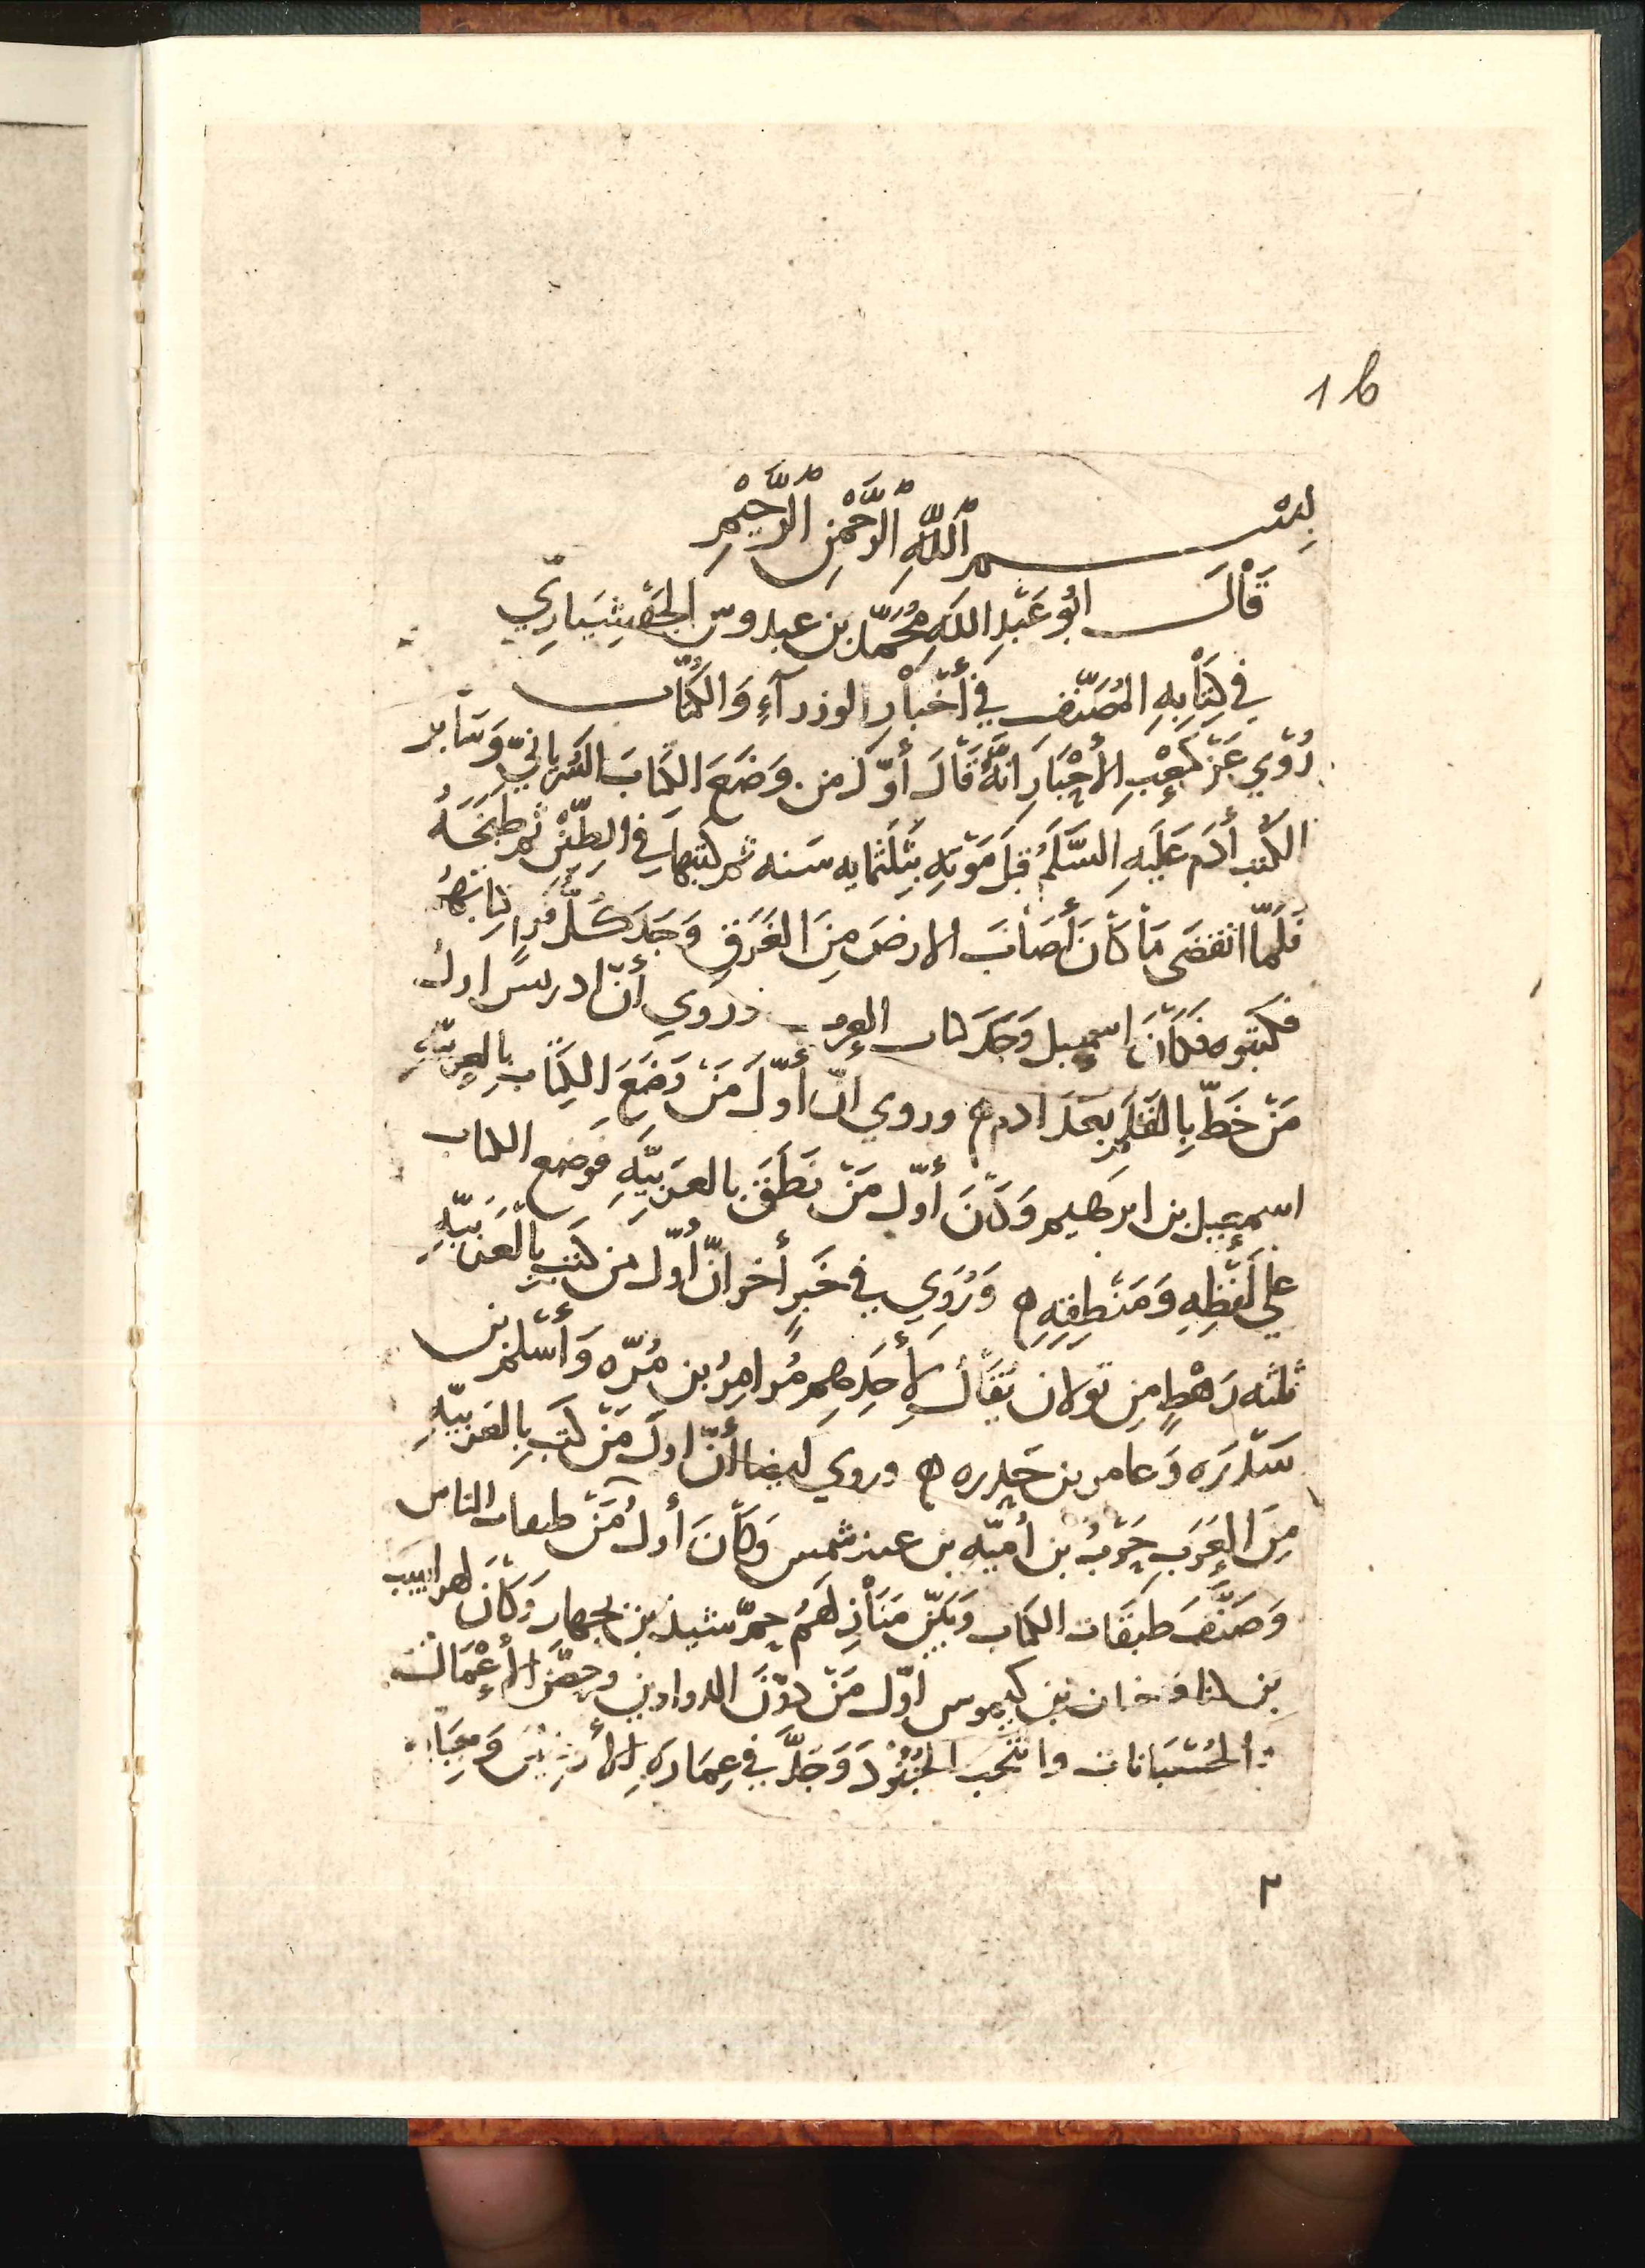 1 b
بِسْــــمِ ٱللَّهِ ٱلرَّحْمٰنِ ٱلرَّحِيْمِ
قَاْلَ ابُو عَبْدِ اللَّهِ مُحَمَّد بن عبدوس الجَهْشِيَارِيّ
في كِتَاْبِهِ المُصَنَّفِ فِي أَخْبَاْرِ الوزرآءِ وَالكُتَّاب
رُوْيِ عَنْ كَعْبِ الأَحْبَارِ انَّهُ قَالَ أوّلُ من وَضَعَ الكتابَ السُّرْيانِيَّ وَسَاْير
الكُتب أدَم عَلَيهِ السَّلَمُ قبلَ مَوْتِهِ بِثَلَثمايه سَنه ثم كتبها فِي الطِّيْنِ ثم طَبَخَهُ
فَلَمَّا انقضى مَاْ كَاْنَ أَصَاْبَ الارضَ مِنَ الغَرَقِ وَجَدَ كُلُّ قَومٍ كتابَهُم
فكتبوه فَكَاْنَ اسمعِيل وَجَدَ كتاب العرب وروي أنّ ادرِيسَ اول
مَنْ خَطّ بِالقَلَمِ بَعدَ ادم ه وروي انّ أوّلَ مَنْ وَضَعَ الكِتَاْبَ بِالعربيّهِ
اسمعِيل بن ابرهيم وَكَاْنَ أوّل مَنْ نَطَقَ بالعَرَبِيَّهِ فوضع الكتاب
علي لَفْظِهِ وَمَنْطِقِهِ ه وَرُوِي في خَبَرٍ أخر انّ أوّل مَن كتبَ بِالْعَرَبيّهِ
ثلثه رَهْطٍ مِن بَولان يُقَاْلُ لأَحَدِهِم مُرامِرُ بن مُرّه وَأَسْلم بن
سَدْرَه وَعامر بن حَدره ه وروي ايضا أنّ اولَ مَنْ كتَبَ بِالعَرَبيّهِ
مِنَ العَرَبِ حَرْبُ بن أُمَيّه بن عبد شمس وَكَاْنَ أولُ مَنْ طبقات الناس
وَصَنَّفَ طَبَقَات الكتاب وَبَيَّنَ مَنَاْزِلَهُمُ جمّ شيذ بن يجهار وَكَاْنَ لهراسب
بن كَيموس اوّل مَنْ دوَّنَ الدواوين وحَصَّنَ الأَعْمَاْلَ
والحُسْبَانات وانتخب الجُنُوْدَ وَجَدَّ في عِمَارَةِ الأَرضِيْنَ وَجِبَا
٢